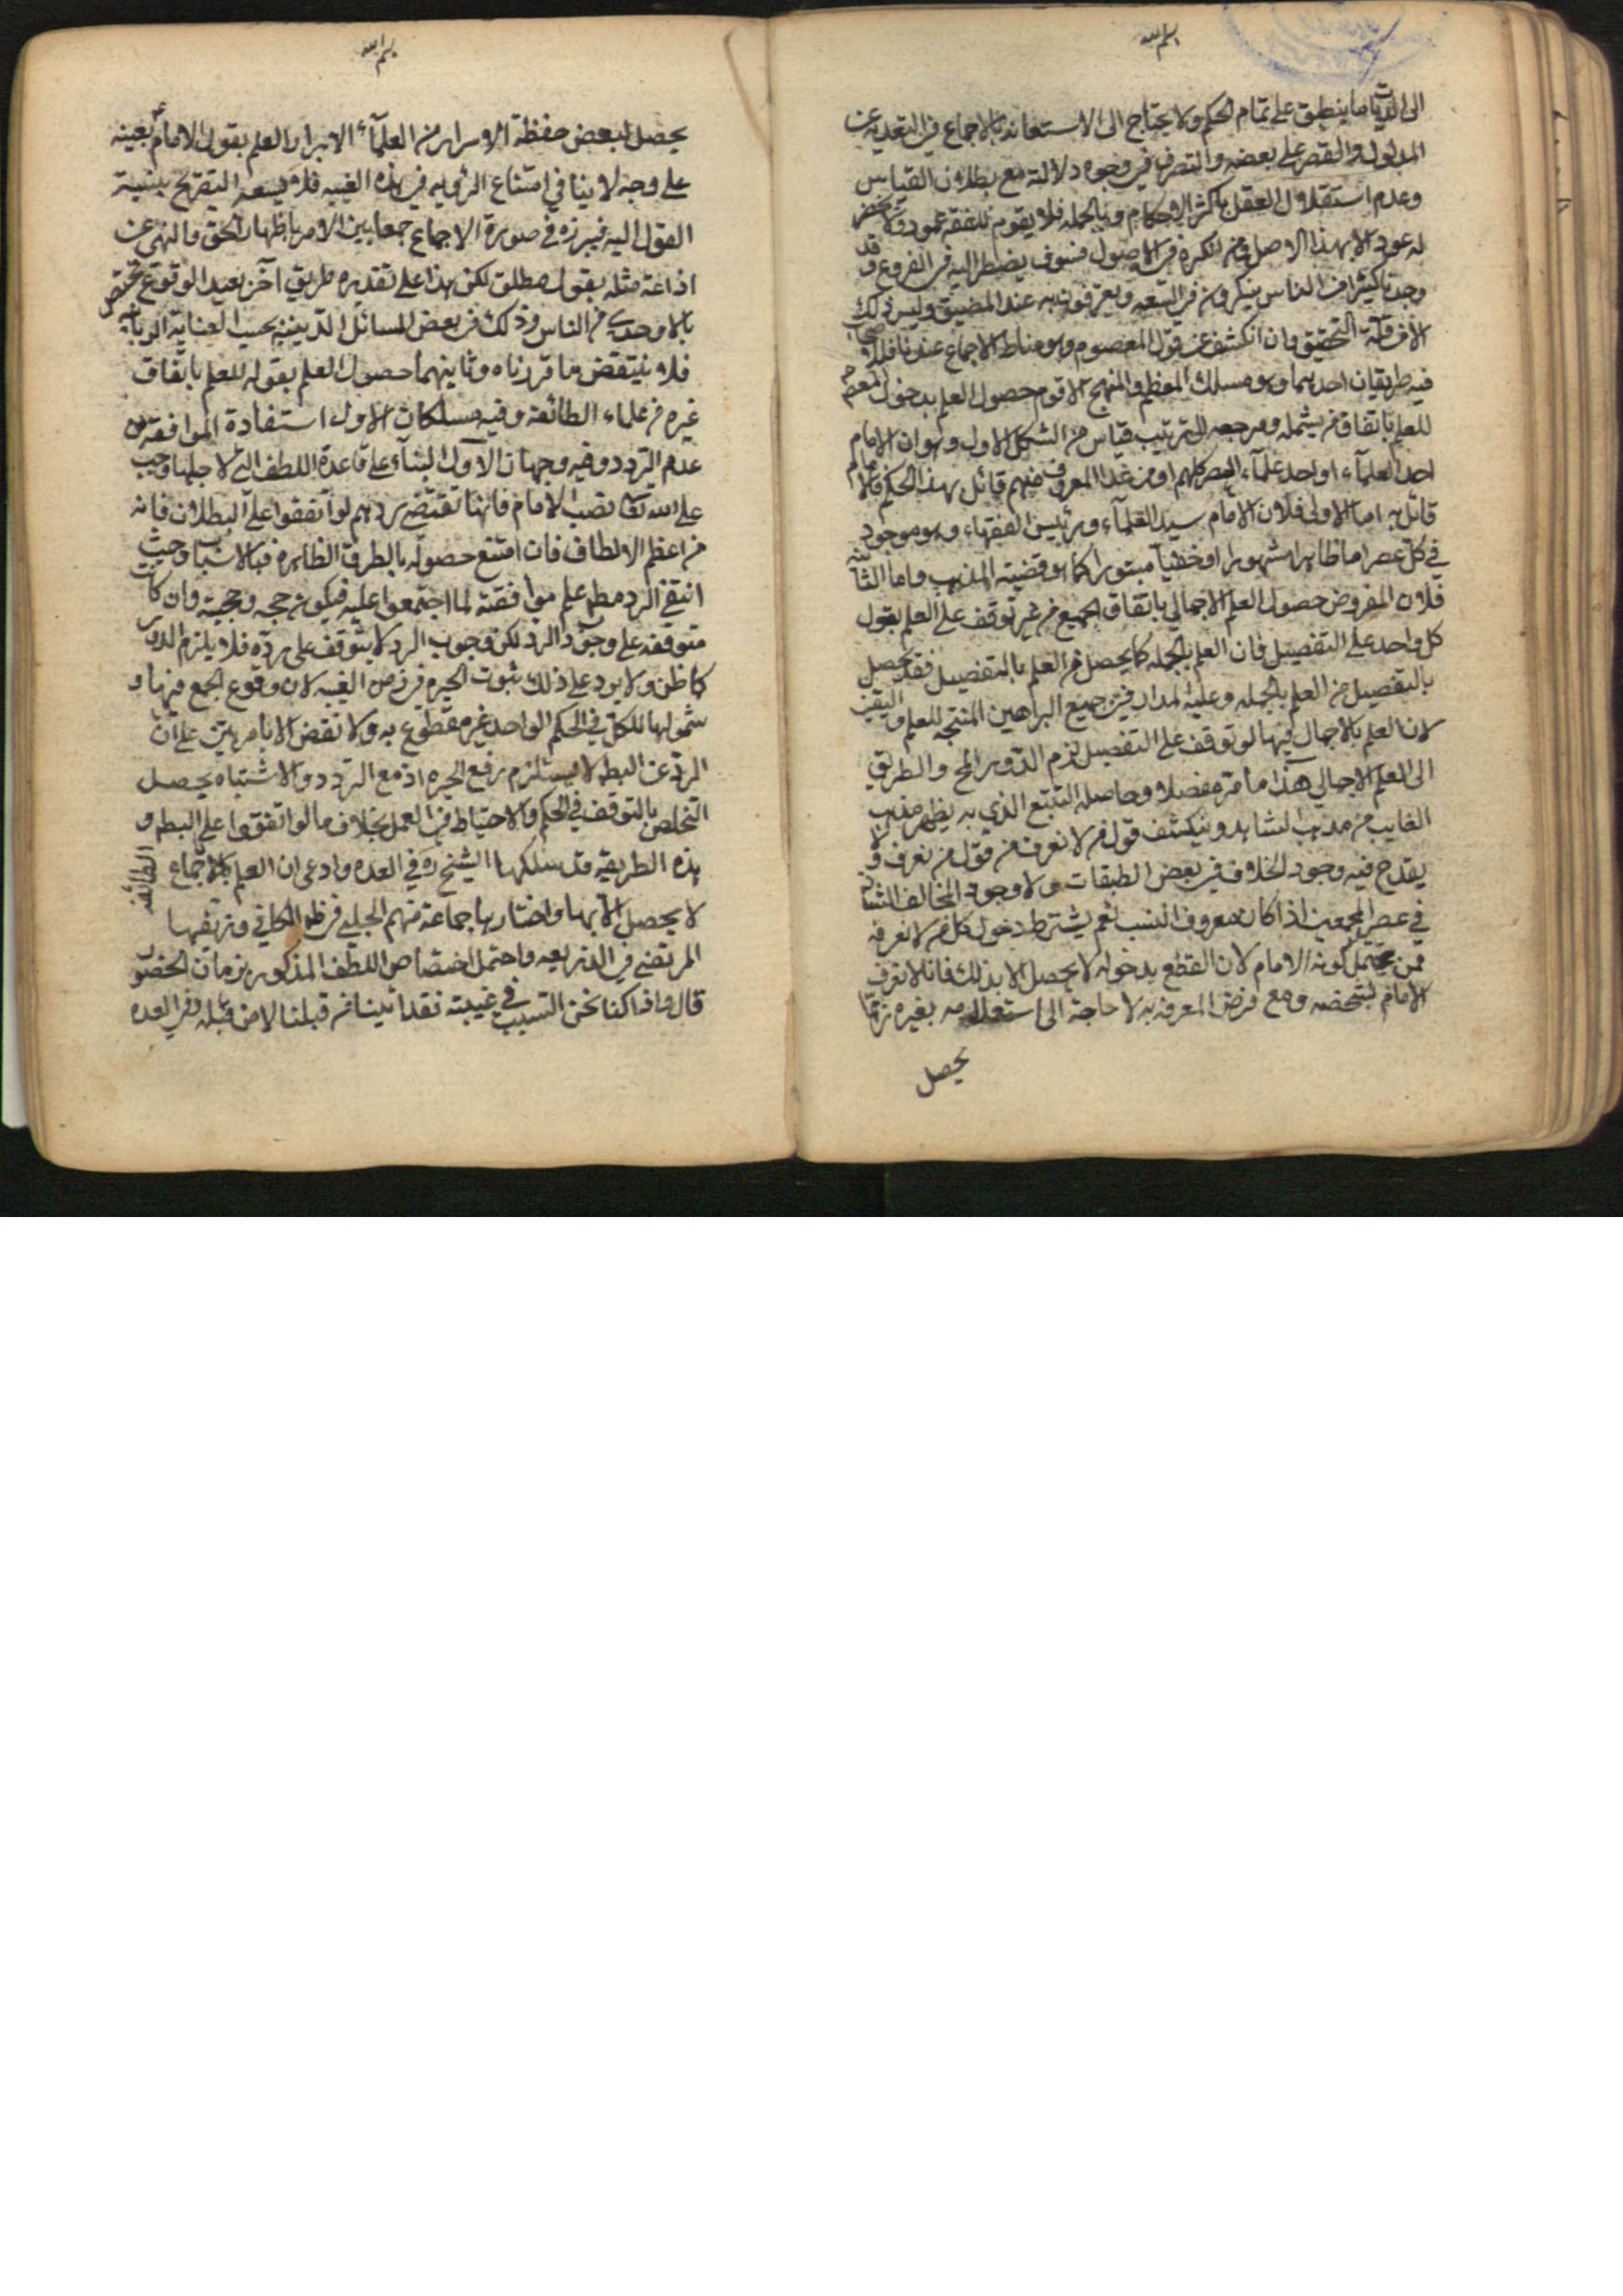 بسم الله
الى الديات ما ينطبق على تمام الحكم ولا يحتاج الى الاستعانة بالاجماع في التعدية عن
المدلول والقصر على بعضه والتصرف في وجوه دلالته مع بطلان القياس
وعدم استقلال العقل باكثر الاحكام وبالجملة فلا يقوم للفقه عمود ولا يخضر
له عود الا بهذا الاصل فمن انكره في الاصول فسوف يضطر اليه في الفروع وقد
وجدنا كثيرا من الناس ينكرونه في السعه ويعترفون به عند المضيق وليس ذلك
الا من قلة التحقيق وان انكشف عن قول المعصوم وهو مناط الاجماع عندنا فله
فيه طريقان احدهما وهو مسلك المعظم والمنهج الاقوم حصول العلم بدخول المعصوم
للعلم باتفاق من يشمله ومرجعه الى ترتيب قياس من الشكل الاول وهو ان الامام
احد العلماء او احد علماء العصر كلهم او من عدا المعروف منهم قائل بهذا الحكم فالامام
قائل به اما الاولى فلان الامام سيد العلماء ورئيس الفقهاء وهو موجود
في كل عصر اما ظاهرا مشهورا او خفيا مستورا كما هو قضية المذهب واما الثانية
فلان المفروض حصول العلم الاجمالي باتفاق الجميع من غير توقف على العلم بقول
كل واحد على التفصيل فان العلم بالجمله كما يحصل من العلم بالتفصيل فقد يحصل
بالتفصيل من العلم بالجمله وعليه المدار في جميع البراهين المنتجه للعلم واليقين
لان العلم بالاجمال فيها لو توقف على التفصيل لزم الدور المح والطريق
الى العلم الاجمالي هنا ما مر مفصلا وحاصله التتبع الذي به يظهر مذهب
الغايب من مذهب الشاهد وينكشف قول من لا نعرف من قول من نعرف ولا
يقدح فيه وجود الخلاف في بعض الطبقات ولا وجود المخالف الشاذ
في عصر المجمعين اذا كان معروف النسب نعم يشترط دخول كل من لا نعرفه
ممن يحتمل كونه الامام لان القطع بدخوله لا يحصل الا بذلك فانا لا نعرف
الامام بشخصه ومع فرض المعرفه به لا حاجة الى استعلامه بغيره نعم
يحصل
بسم الله
يحصل لبعض حفظة الاسرار من العلماء الابرار العلم بقول الامام ع بعينه
على وجه لا ينافي امتناع الرؤيه في هذه الغيبه فلا يسعه التصريح بنسبة
القول اليه فيبرزه في صورة الاجماع جمعا بين الامر باظهار الحق والنهي عن
اذاعة مثله بقول مطلق لكن هذا على تقديره طريق آخر بعيد الوقوع مختص
بالاوحدي من الناس وذلك في بعض المسائل الدينيه بحسب العناية الربانيه
فلا ينتقض ما قررناه وثانيهما حصول العلم بقوله للعلم باتفاق
غيره من علماء الطائفة وفيه مسلكان الاول استفادة الموافقه من
عدم التردد وفيه وجهان الاول البناء على قاعدة اللطف التي لاجلها وجب
على الله تعالى نصب الامام فانها تقتضي ردهم لو اتفقوا على البطلان فانه
من اعظم الالطاف فان امتنع حصوله بالطرق الظاهره فبالاسباب وحيث
انتفى الرد مطلقا علم موافقته لما اجتمعوا عليه فيكون حجه وحجيته وان كانت
متوقفه على وجود الرد لكن وجوب الرد لا يتوقف على رده فلا يلزم الدور
كما ظن ولا يرد على ذلك ثبوت الحيره في زمن الغيبه لان وقوع الجمع فيها و
شمولها للكل في الحكم الواحد غير مقطوع به ولا نقض الا بامرين على ان
الرد عن البطلان لا يستلزم رفع الحيره اذ مع التردد والاشتباه يحصل
التخلص بالتوقف في الحكم والاحتياط في العمل بخلاف ما لو اتفقوا على البطلان و
هذه الطريقه قد سلكها الشيخ ره في العده وادعى ان العلم باجماع الطائفة
لا يحصل الا بها واختارها جماعة منهم الحلبي في ظاهر الكافي وزيفها
المرتضى في الذريعه واحتمل اختصاص اللطف المذكور بزمان الحضور
قال واذا كنا نحن السبب في غيبته فقد اتينا من قبلنا لا من قبله وفي العده